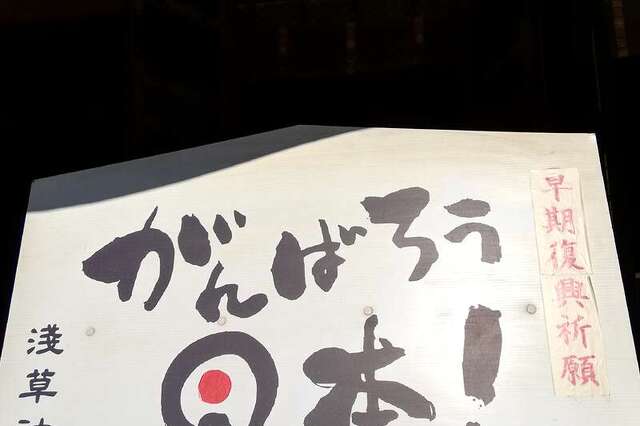 早期復興祈願
がんばろう
日本!
淺草